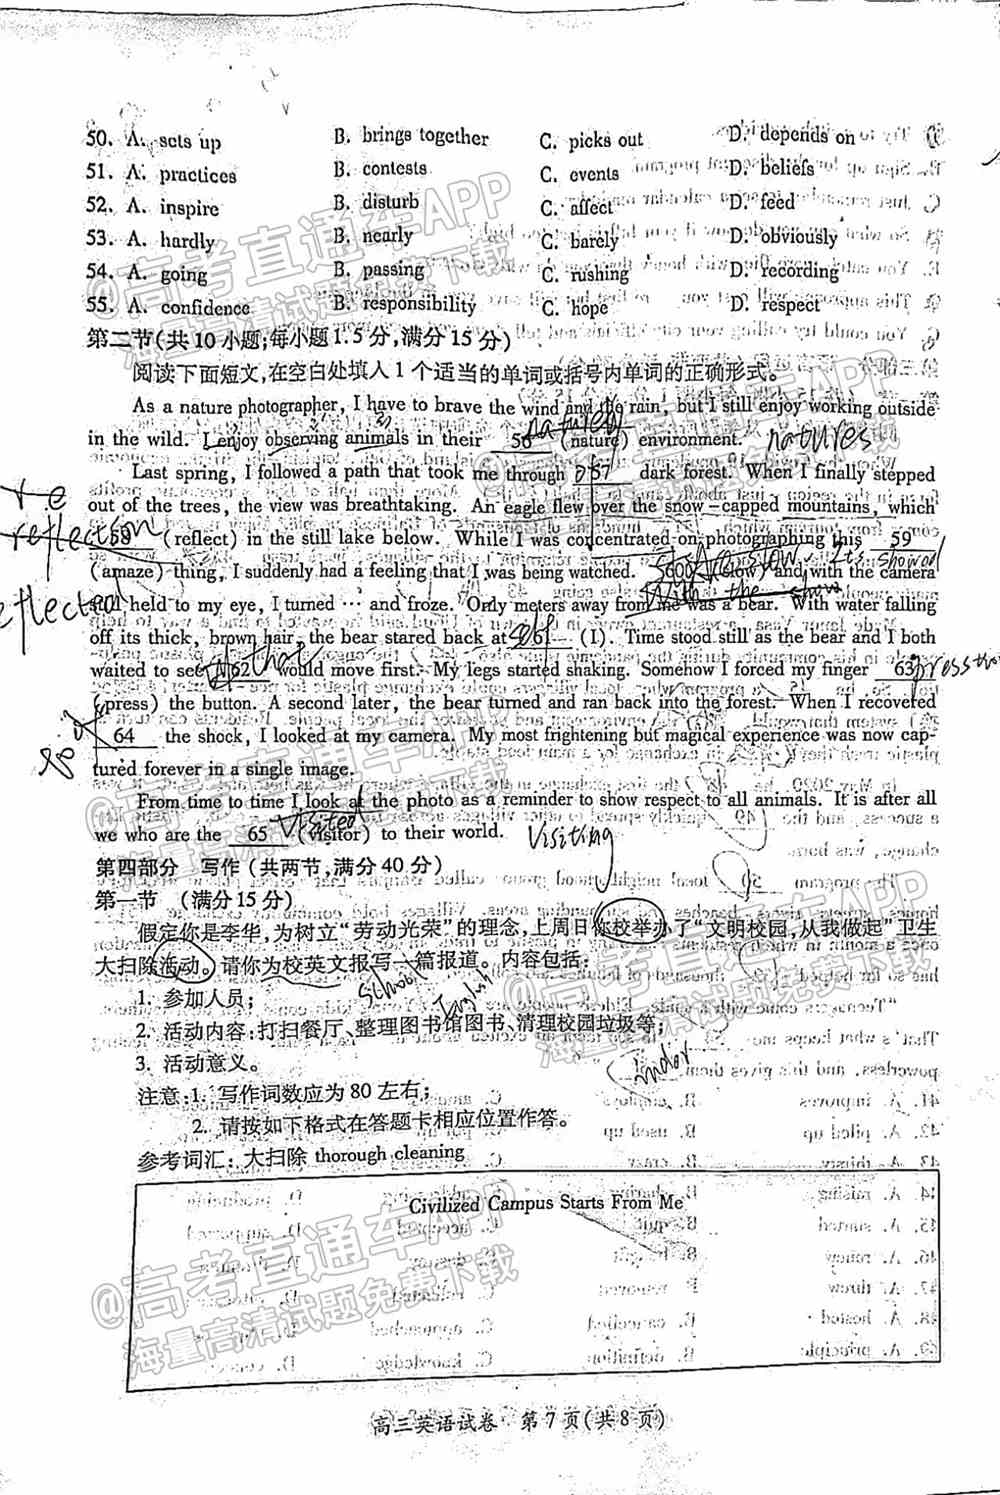 50. A. sets up B. brings together C. picks out D. depends on
51. A. practices B. contests C. events D. beliefs
52. A. inspire B. disturb C. affect D. feed
53. A. hardly B. nearly C. barely D. obviously
54. A. going B. passing C. rushing D. recording
55. A. confidence B. responsibility C. hope D. respect
第二节(共10小题;每小题1.5分,满分15分)
阅读下面短文,在空白处填入1个适当的单词或括号内单词的正确形式。
As a nature photographer, I have to brave the wind and the rain, but I still enjoy working outside
in the wild. I enjoy observing animals in their 56 (nature) environment. natures
Last spring, I followed a path that took me through 57 dark forest. When I finally stepped
out of the trees, the view was breathtaking. An eagle flew over the snow-capped mountains, which
reflection
58 (reflect) in the still lake below. While I was concentrated on photographing this 59
(amaze) thing, I suddenly had a feeling that I was being watched. (slow) and with the camera
reflected
still held to my eye, I turned … and froze. Only meters away from me was a bear. With water falling
off its thick, brown hair, the bear stared back at 61 (I). Time stood still as the bear and I both
self
waited to see 62 would move first. My legs started shaking. Somehow I forced my finger 63
that
(press) the button. A second later, the bear turned and ran back into the forest. When I recovered
64 the shock, I looked at my camera. My most frightening but magical experience was now cap-
tured forever in a single image.
From time to time I look at the photo as a reminder to show respect to all animals. It is after all
we who are the 65 (visitor) to their world.
visited
visiting
第四部分 写作 (共两节,满分40分)
第一节 (满分15分)
假定你是李华,为树立“劳动光荣”的理念,上周日你校举办了“文明校园,从我做起”卫生
大扫除活动。请你为校英文报写一篇报道。内容包括:
school
English
1. 参加人员;
2. 活动内容:打扫餐厅、整理图书馆图书、清理校园垃圾等;
3. 活动意义。
注意:1. 写作词数应为80左右;
2. 请按如下格式在答题卡相应位置作答。
参考词汇:大扫除 thorough cleaning
Civilized Campus Starts From Me
高三英语试卷 第7页(共8页)
@高考直通车APP
海量高清试题免费下载
@高考直通车APP
海量高清试题免费下载
@高考直通车APP
海量高清试题免费下载
@高考直通车APP
海量高清试题免费下载
@高考直通车APP
海量高清试题免费下载